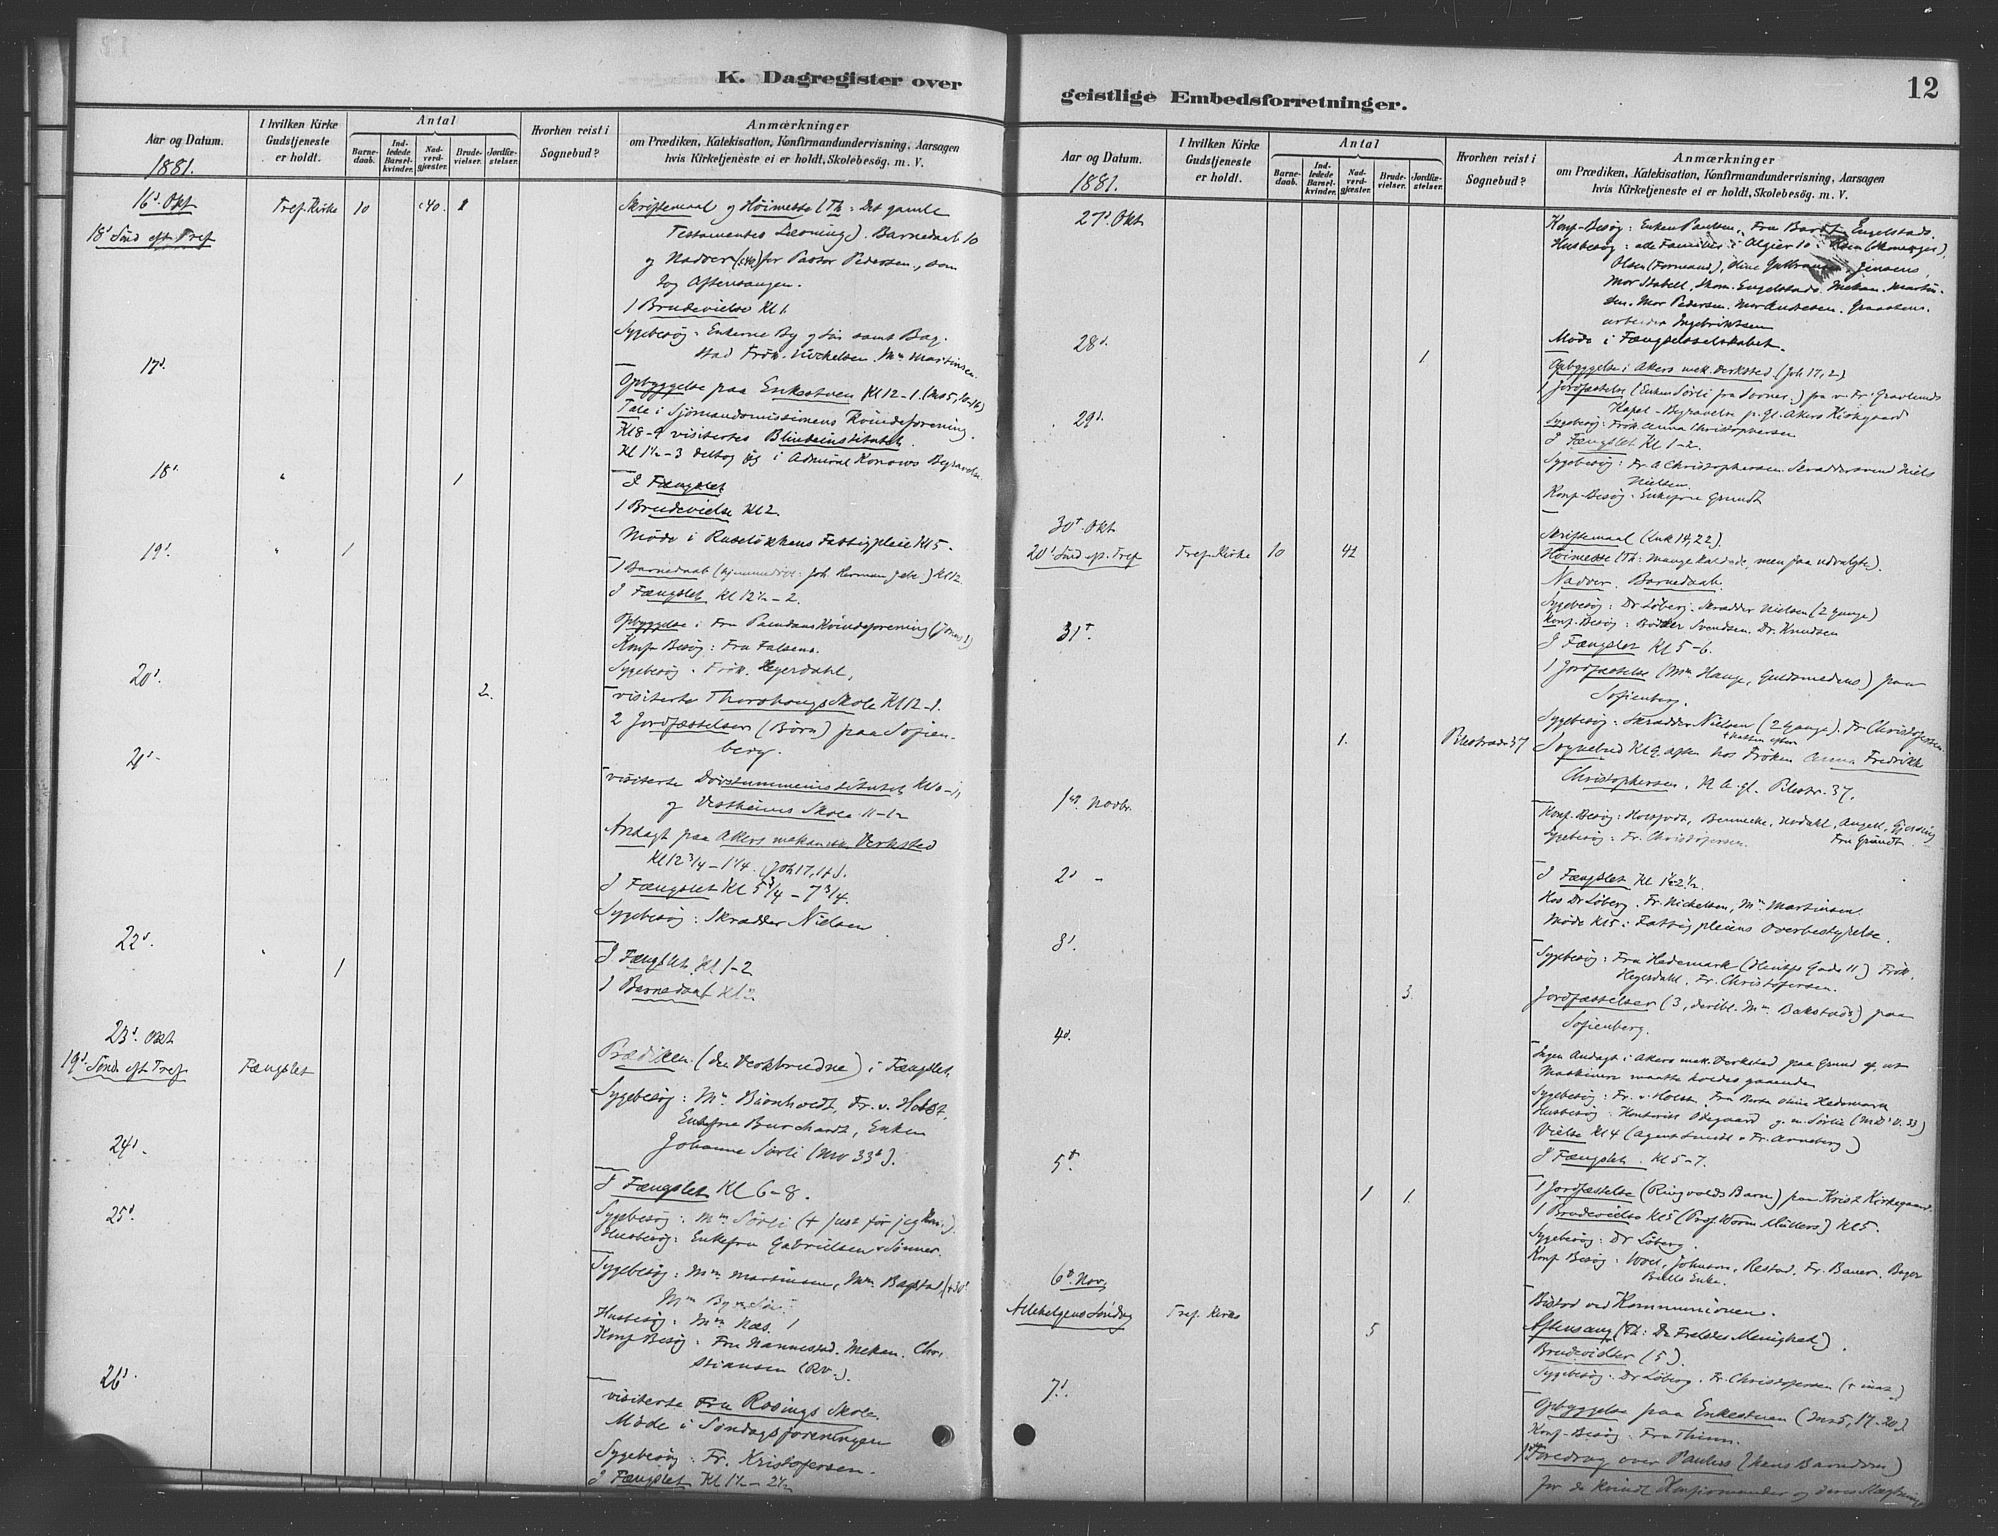 K. Dagregister over
Aar og Datum.
1881.
I hvilken Kirke Gudstjeneste er holdt.
Antal
Barnedaab.
Indledede Barselkvinder.
Nadverdgjæster.
Brudevielser.
Jordfæstelser.
Hvorhen reist i Sognebud?
Anmærkninger
om Prædiken, Katekisation, Konfirmandundervisning, Aarsagen
hvis Kirketjeneste ei er holdt, Skolebesög. m. V.
16d. Okt Tref. Kirke 10 40. 1 Skriftemaal og Høimesse (Th: Det gamle
18d Sönd eft Tref Testamentes Læsning). Barnedaab 10
og Nadver (40) for Pastor Pedersen, som
tog Aftensangen.
1 Brudevielse Kl 1.
Sygebesög: Enkerne By og Sön samt Bag-
stad Frök. Mm Martinsen.
17d. Opbyggelse paa Enkestuen Kl 12-1. (Ms 5, 10-16)
Tale i Sjömandsmissionens Kvindeforening.
Kl 8-9 visiteres Blindeinstitutet.
Kl 1½-3 deltog jeg i Admiral Konows Begravelse.
18d. " 1 I Fængslet
1 Brudevielse Kl 2.
Möde i Ruselökkens Fattigpleie Kl 5.
19d. " 1 1 Barnedaab (hjemmedöbt: Joh. Herman) Kl 12.
I Fængslet Kl 12½-2.
Opbyggelse i Fru Kvindeforening (Jonas 1)
Konf-Besög: Fru Falsens.
Sygebesög. Frök. Heyerdahl.
20d. 2. visiterte Thorshougs Skole Kl 12-1.
2 Jordfæstelser (Börn) paa Sofien-
berg.
21d - visiterte Dövstummeinstitutet Kl 10-11
og Vestheims Skole 11-12
Andagt paa Akers mekaniske Verksted
Kl 12¾-1¼. (Joh 17, 1).
I Fængslet Kl 5¾-7¾.
Sygebesög: Skrædder Nielsen
22d. " 1 I Fængslet Kl 1-2
1 Barnedaab Kl
23d. Okt
19d Sönd. eft Tref Fængslet Prædiken (den Verkbrudne) i Fængslet.
Sygebesög: Mm Björnholdt, Fr. v. Holst,
Enkefru Burchardt, Enken
Johanne Sörli (Mv 33b).
24d. I Fængslet Kl 6-8.
Sygebesög: Mm Sörli (+ just för jeg kom.)
Husbesög: Enkefru Gabrielsen & Sönner.
25d. Sygebesög: Mm Martinsen, Mm Bagstad
Mm By & Sön
Husbesög: Mm Næs.
Konf Besög: Fru Nannestad. Mekan. Chri-
stiansen
26d. visiterte Fru Rosings Skole.
Möde i Söndagsforeningen
Sygebesög: Fr. Kristofersen.
I Fængslet Kl 1½-2½
geistlige Embedsforretninger.
12
Aar og Datum.
1881.
I hvilken Kirke Gudstjeneste er holdt.
Antal
Barnedaab.
Indledede Barselkvinder.
Nadverdgjæster.
Brudevielser.
Jordfæstelser.
Hvorhen reist i Sognebud?
Anmærkninger
om Prædiken, Katekisation, Konfirmandundervisning, Aarsagen
hvis Kirketjeneste ei er holdt, Skolebesög. m. V.
27d Okt Konf-Besög: Enken Paulsen, Fru Engelstads.
Husbesög: alle Familier i Algier 10:
Olsen (Formand), Jensens,
Mor Stabell, Skom. Engelstads. Mekan. Martin-
sen. Mor Pedersen. Mor Andresen.
arbeider Ingebriktsen
Möde i Fængselsselskabet.
28d. 1 Opbyggelse i Akers mek. Verksted. (Joh 17, 2)
1 Jordfæstelse (Enken Sörli) paa v. Fr. Gravlunds
Kapel - Begravelse p. gl. Akers Kirkegaard
Sygebesög: Frök Anna Christophersen
29d. I Fængslet Kl 1-2.
Sygebesög: Fr. A Christophersen. Skræddersvend Niels
Nielsen.
Konf-Besög: Enkefru Grundt
30t. Okt Skriftemaal (Luk 14, 22).
20d Sönd ef. Tref Tref. Kirke 10 42 Höimesse (Th: Mange kaldede, men faa udvalgte).
Nadver. Barnedaab.
Sygebesög: Dr Löberg. Skrædder Nielsen (2 Gange)
Konf. Besög: Bödker Svendsen. Dr. Knudsen
31t. I Fængslet Kl 5-6.
1 Jordfæstelse (Mm Hauge, Guldsmedens) paa
Sofienberg.
Sygebesög: Skrædder Nielsen (2 Gange). Fr Christofersen.
1. Pilestrædet 37 Sognebud Kl 9 aften hos Fröken Anna Fredrikk
Christophersen, Pilestr. 37.
1st. Novbr. Konf. Besög: Horsfvdt, Bennecke, Angell, Gjersing
Sygebesög: Fr. Christofersen. Fru Grundt.
2d - I Fængslet Kl 1½-2½.
Hos Dr Löberg. Fr. Michelsen, Mm Martinsen.
Möde Kl 5 i Fattigpleiens Overbestyrelse.
3d. Sygebesög: Fru Hedemark 11) Frök.
Heyerdahl, Fr. Christofersen.
3. Jordfæstelser (3, deribl. Mm Bakstads) paa
Sofienberg.
4d. Ingen Andagt i Akers mek. Verksted paa Grund af, at
Maskinen maatte holdes gaaende
Sygebesög: Fr. v. Holst. Fru Hedemark
Husbesög: Kontorist Ödegaard
Vielse Kl 4 (Agent Smidt & Fr. Arneberg)
I Fængslet. Kl 5-7.
5t. 1 1. 1 Jordfæstelse (Ringvolds Barn) paa Krist Kirkegaard.
1 Brudevielse Kl 5 (Prof. Worm Müllers) Kl 5.
Sygebesög: Dr Löberg.
Konf Besög: Johnson, Restad, Fr. Bauer. Bager
Bulls Enke.
6t. Nov Bistod ved Kommunionen.
Allehelgens Söndag Tref. Kirke 5 Aftensang (Th: De Frelstes Menighed).
Brudevielser (5).
Sygebesög: Dr Löberg. Fr. Christofersen (+ inat)
7d. Opbyggelse paa Enkestuen (Ms 5, 17-20).
Konf-Besög: Fru Thinn.
Foredrag over Paulus (hans Barndom)
for de kvindl Konfirmander og deres Slægtninge